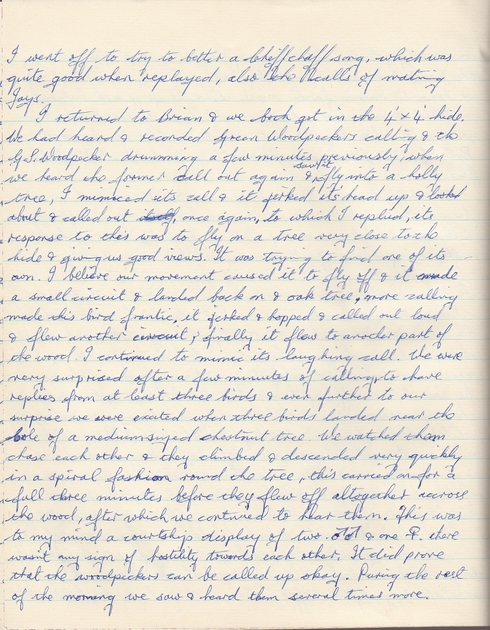 I went off to try to better a Chiffchaff song, which was
quite good when replayed, also the calls of mating
Jays.
I returned to Brian & we both got in the 4' x 4' hide.
We had heard & recorded Green Woodpeckers calling & the
G.S. Woodpecker drumming a few minutes previously, when
we heard the former call out again & saw it fly into a holly
tree, I mimiced its call & it jerked it's head up & looked
about & called out once again, to which I replied, its
response to this was to fly on a tree very close to the
hide & giving us good views. It was trying to find one of its
own. I believe our movement caused it to fly off & it made
a small circuit & landed back on a oak tree, more calling
made this bird frantic, it jerked & hopped & called out loud
& flew another circuit, finally it flew to another part of
the wood. I continued to mimic its laughing call. We were
very surprised after a few minutes of calling, to have
replies from at least three birds & even further to our
surprise we were excited when three birds landed near the
bole of a medium sized chestnut tree. We watched them
chase each other & they climbed & descended very quickly
in a spiral fashion round the tree, this carried on for a
full three minutes before they flew off altogether accross
the wood, after which we continued to hear them. This was
to my mind a courtship display of two ♂♂ & one ♀, there
wasn't any sign of hostility towards each other. It did prove
that the woodpeckers can be called up okay. During the rest
of the morning we saw & heard them several times more.